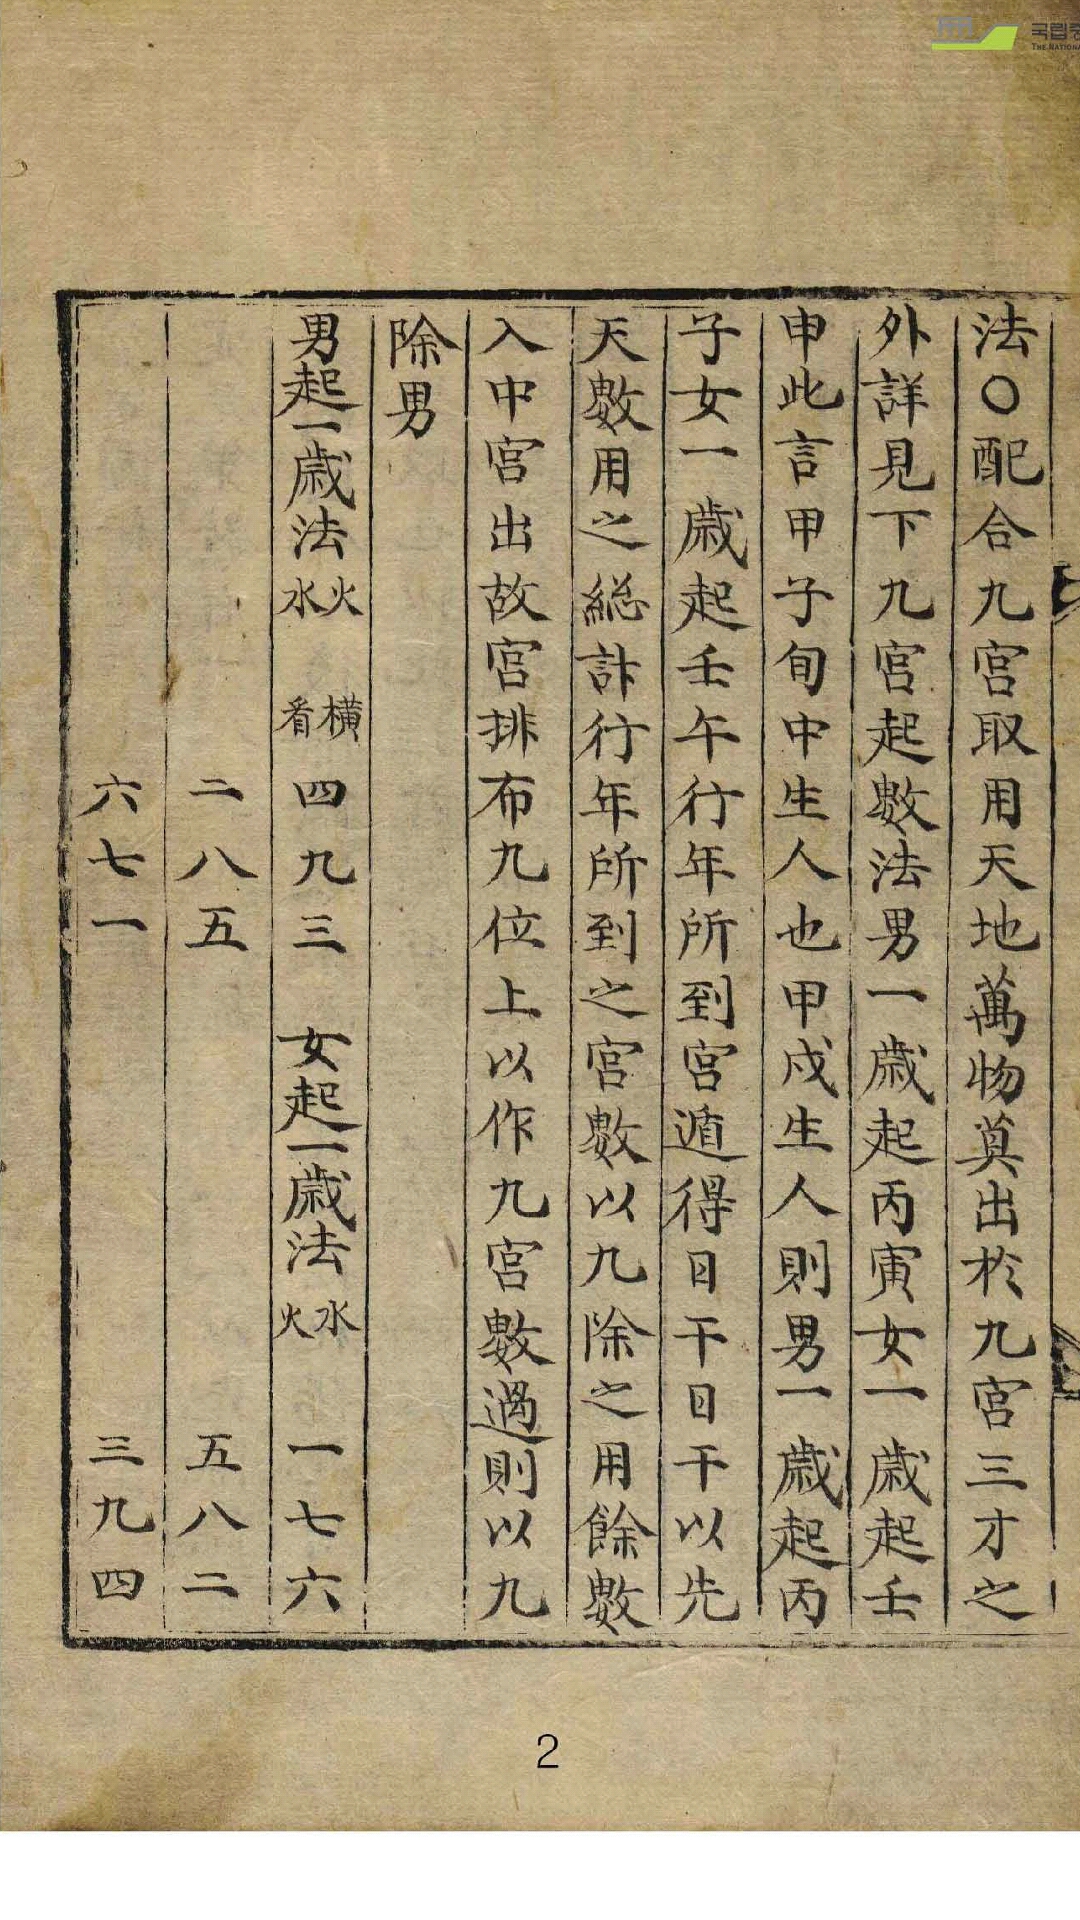 法○配合九宮取用天地萬物莫出於九宮三才之
外詳見下九宮起數法男一歲起丙寅女一歲起壬
申此言甲子旬中生人也甲戌生人則男一歲起丙
子女一歲起壬午行年所到宮遁得日干日干以先
天數用之総計行年所到之宮數以九除之用餘數
入中宮出故宮排布九位上以作九宮數過則以九
除男
男起一歲法 火水 橫看 四九三 女起一歲法 水火 一七六
二八五 五八二
六七一 三九四
국립중
THE NATIONA
2